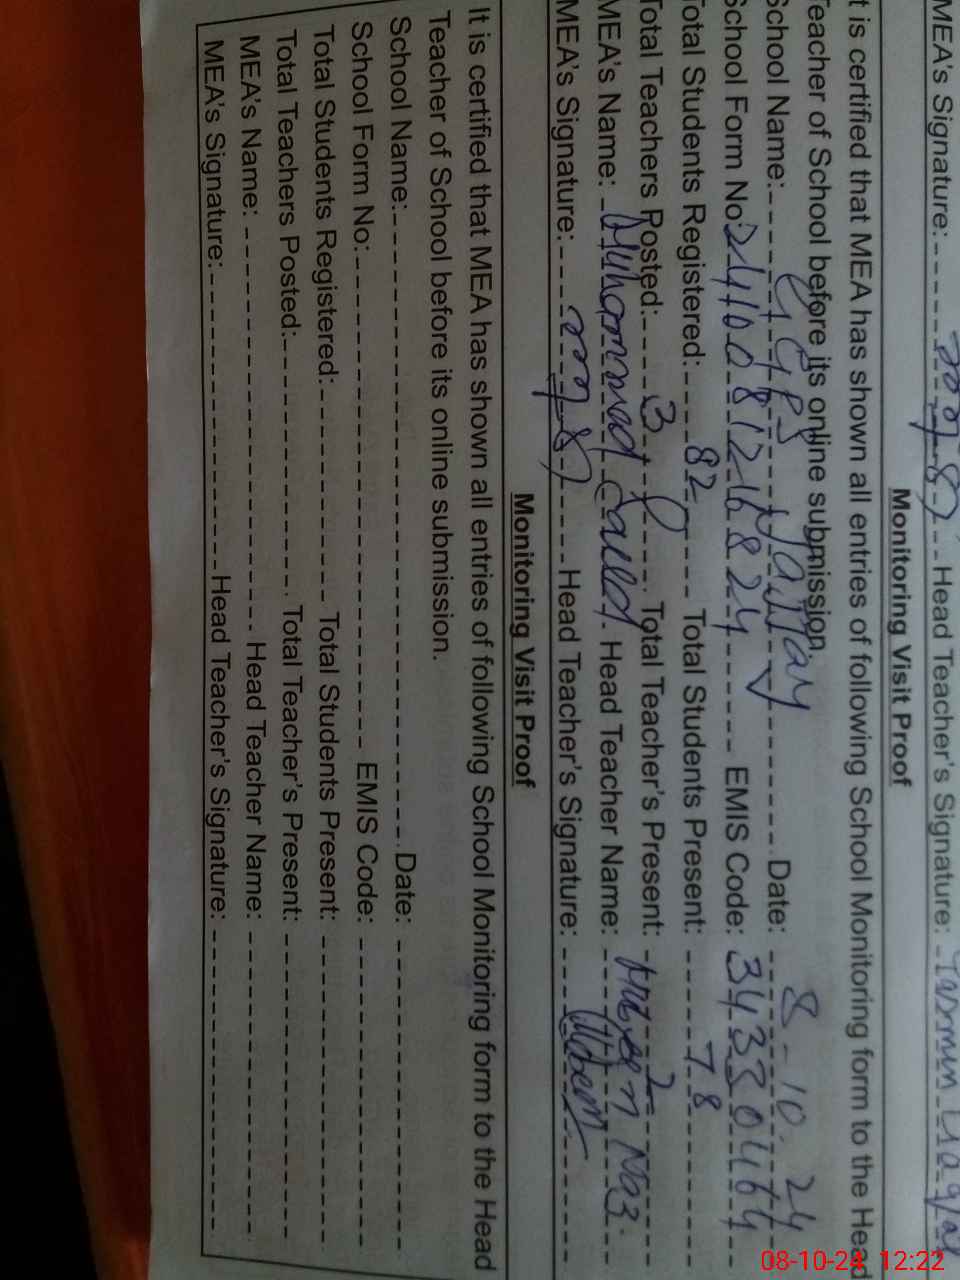 MEA's Signature: Head Teacher's Signature:
Monitoring Visit Proof
It is certified that MEA has shown all entries of following School Monitoring form to the Head
Teacher of School before its online submission.
School Name: GGPS Date: 8-10-24
School Form No: EMIS Code: 34330464
Total Students Registered: 82 Total Students Present: 78
Total Teachers Posted: 3 Total Teacher's Present: 2
MEA's Name: Muhammad Head Teacher Name:
MEA's Signature: Head Teacher's Signature:
Monitoring Visit Proof
It is certified that MEA has shown all entries of following School Monitoring form to the Head
Teacher of School before its online submission.
School Name: Date:
School Form No: EMIS Code:
Total Students Registered: Total Students Present:
Total Teachers Posted: Total Teacher's Present:
MEA's Name: Head Teacher Name:
MEA's Signature: Head Teacher's Signature:
08-10-24 12:22